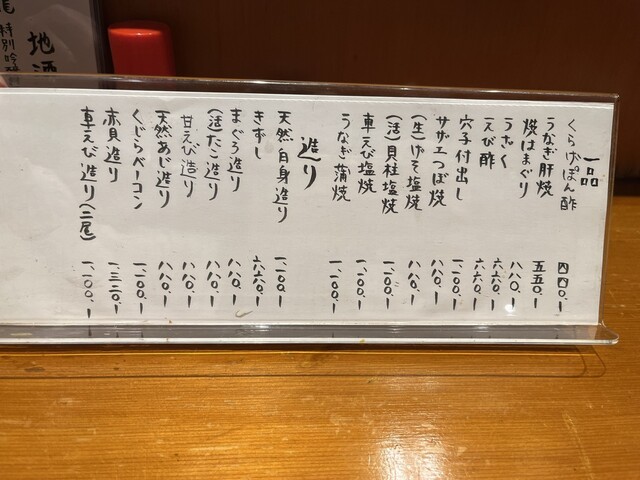 一品
くらげぽん酢 四四〇.ー
うなぎ肝焼 五五〇.ー
焼はまぐり 八八〇.ー
うざく 六六〇.ー
えび酢 六六〇.ー
穴子付出し 一、一〇〇.ー
サザエつぼ焼 八八〇.ー
(生)げそ塩焼 八八〇.ー
(活)貝柱塩焼 一、一〇〇.ー
車えび塩焼 一、一〇〇.ー
うなぎ蒲焼 一、一〇〇.ー
造り
天然白身造り 一、一〇〇.ー
きずし 六六〇.ー
まぐろ造り 八八〇.ー
(活)たこ造り 八八〇.ー
甘えび造り 八八〇.ー
天然あじ造り 八八〇.ー
くじらベーコン 一、一〇〇.ー
赤貝造り 一、三二〇.ー
車えび造り(二尾) 一、一〇〇.ー
地酒
特別吟